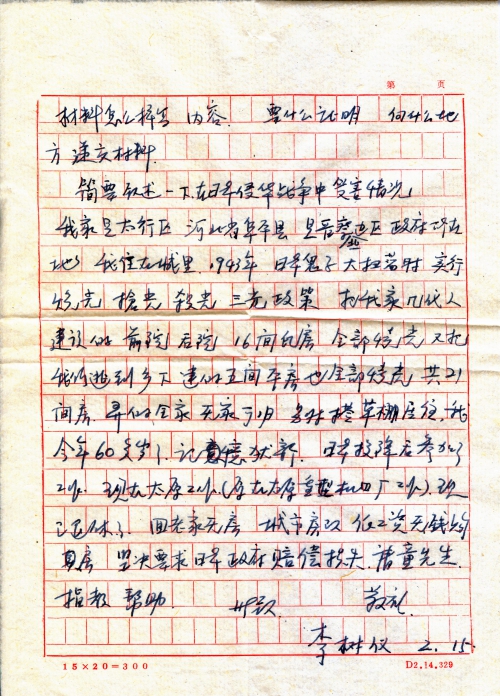 第 页
材料怎么样写 内容 要什么证明 向什么地
方递交材料.
简要叙述一下在日军侵华战争中受害情况
我家是太行区 河北省阜平县 是晋察冀边区政府所在
地 我住在城里. 1943年 日本鬼子大扫荡时 实行
烧光 抢光 杀光 三光政策 把我家几代人
建设的前院后院 16间瓦房 全部烧光 又把
我们逃到乡下建的五间草房也全部烧光 共21
间房. 弄的全家无家可归 搭草棚居住. 我
今年60多岁了. 记忆犹新. 日本投降后参加了
工作. 现在太原工作. (原在太原重型机四厂工作). 现
已退休了. 回老家无房 城市房改 低工资无钱购
买房 坚决要求日本政府赔偿损失. 请童先生
指教 帮助. 此致 敬礼
李树仪 2.15.
15×20=300 D2.14.329